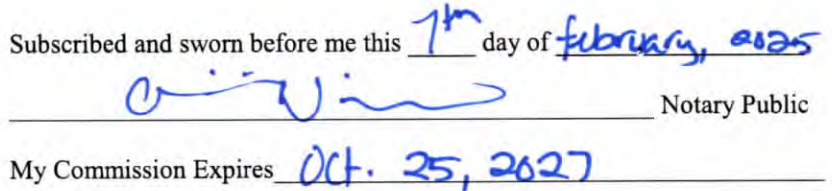 Subscribed and sworn before me this 7th day of february, 2025
Notary Public
My Commission Expires Oct. 25, 2027